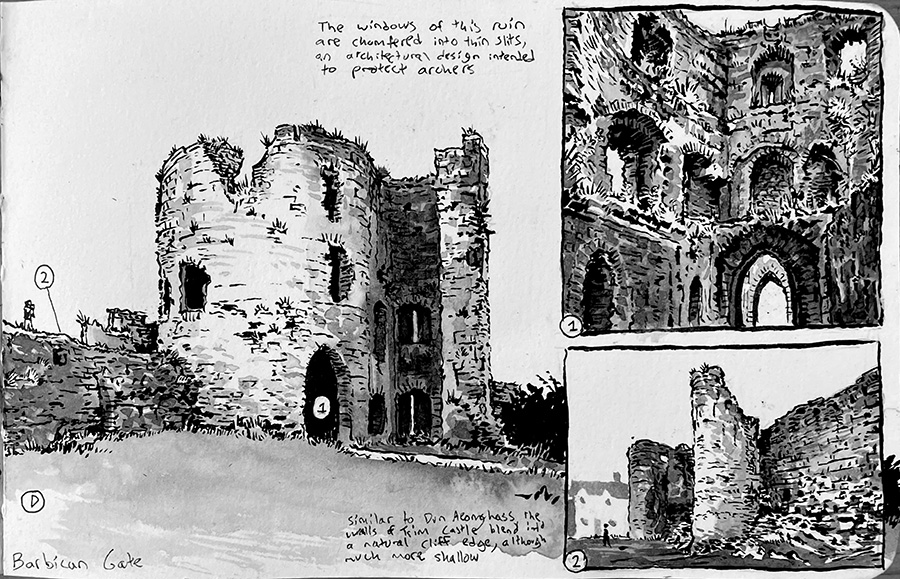 The windows of this ruin
are chamfered into thin slits,
an architectural design intended
to protect archers
2
1
1
2
D
similar to Dun Aeonghass, the
walls of Trim Castle blend into
a natural cliff edge, although
much more shallow
Barbican Gate